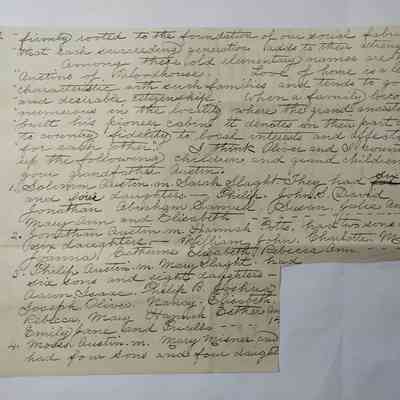 firmly rooted to the foundation of our social fabric
that each succeeding generation adds to their strength
Among these old elementary names are the
Austins of Woodhouse. Love of home is a leading
characteristic with such families and tends to good
and desirable citizenship. When a family locates
numerous in the vicinity where the grand ancestor
built his pioneer cabin it denotes on their part
to country, fidelity to local interests and affection
for each other." I think Oliver and I counted
up the following children and grand children
your grandfather Austin.
1. Solomon Austin m. Sarah Slaght They had six
and four daughters — Philip John S. David
Jonathan Abraham Samuel Susan, Julia Ann
Mary Ann and Elisabeth
2. Jonathan Austin m. Hannah Potts, had two sons
six daughters — William John, Charlotte M
Joanna, Catherine Elisabeth, Rebecca Ann —
3. Philip Austin m. Mary Slaght, had
six sons and eight daughters —
Aaron Isaac, Philip B. Joshua
Joseph Oliver, Nancy - Elisabeth
Rebecca, Mary Hannah Esther Ann
Emily Jane and Priscilla ---
4. Moses Austin. m. Mary Misner and
had four sons and four daught